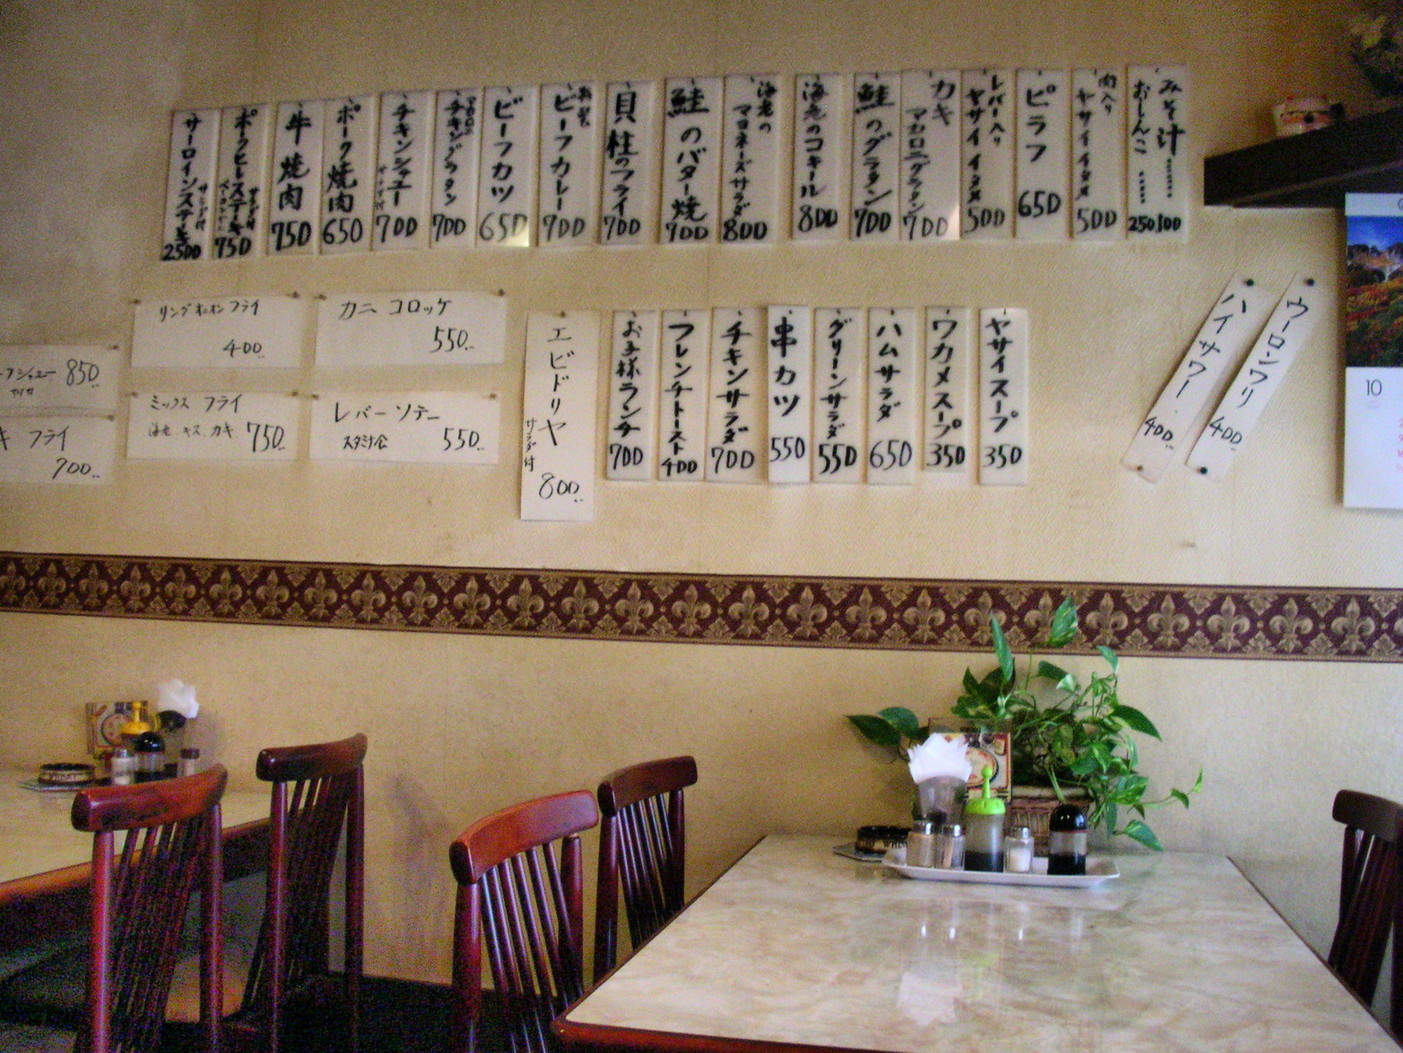 みそ汁………
おしんこ……
250 100
肉入り
ヤサイイタメ
500
ピラフ
650
レバー入り
ヤサイイタメ
500
カキ
マカロニグラタン
700
鮭のグラタン
700
海老のコキール
800
海老の
マヨネーズサラダ
800
鮭のバター焼
700
貝柱のフライ
700
ビーフカレー
700
ビーフカツ
650
チキングラタン
700
チキンシチュー
700
ポーク焼肉
650
牛焼肉
750
ポークヒレステーキ
750
サーロインステーキ
サラダ付
2500
リングオニオンフライ
400
カニコロッケ
550
850
ミックス フライ
海老、キス、カキ
750
レバーソテー
スタミナ
550
キ フライ
700
エビドリヤ
サラダ付
800
ヤサイスープ
350
ワカメスープ
350
ハムサラダ
650
グリーンサラダ
550
串カツ
550
チキンサラダ
700
フレンチトースト
400
お子様ランチ
700
ウーロンワリ
400
ハイサワー
400
10